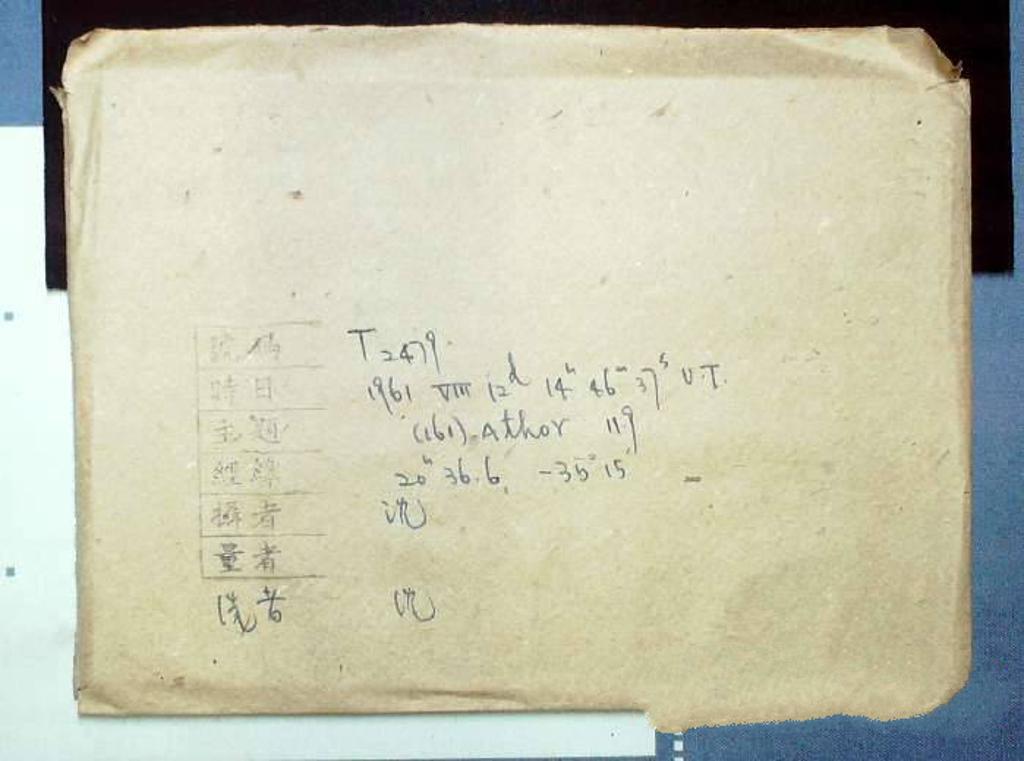 號碼 T 2479
時日 1961 VIII 12d 14h 46m 37s U.T.
主題 (161) Athor 11.9
經緯 20h 36.6, -35° 15'
攝者 沈
量者
洗者 沈